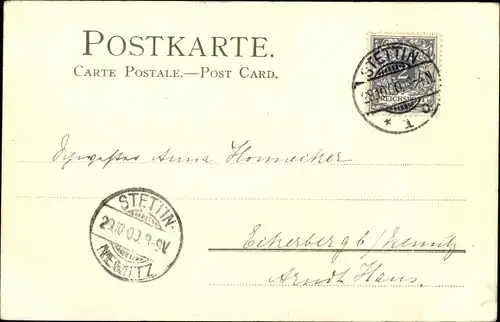 POSTKARTE.
CARTE POSTALE.—POST CARD.
STETTIN
2
REICHSPOST
* 1
Schwester Anna Honnecker
STETTIN-
NEMITZ
Eckerberg b/Nemitz
Arndt Haus.